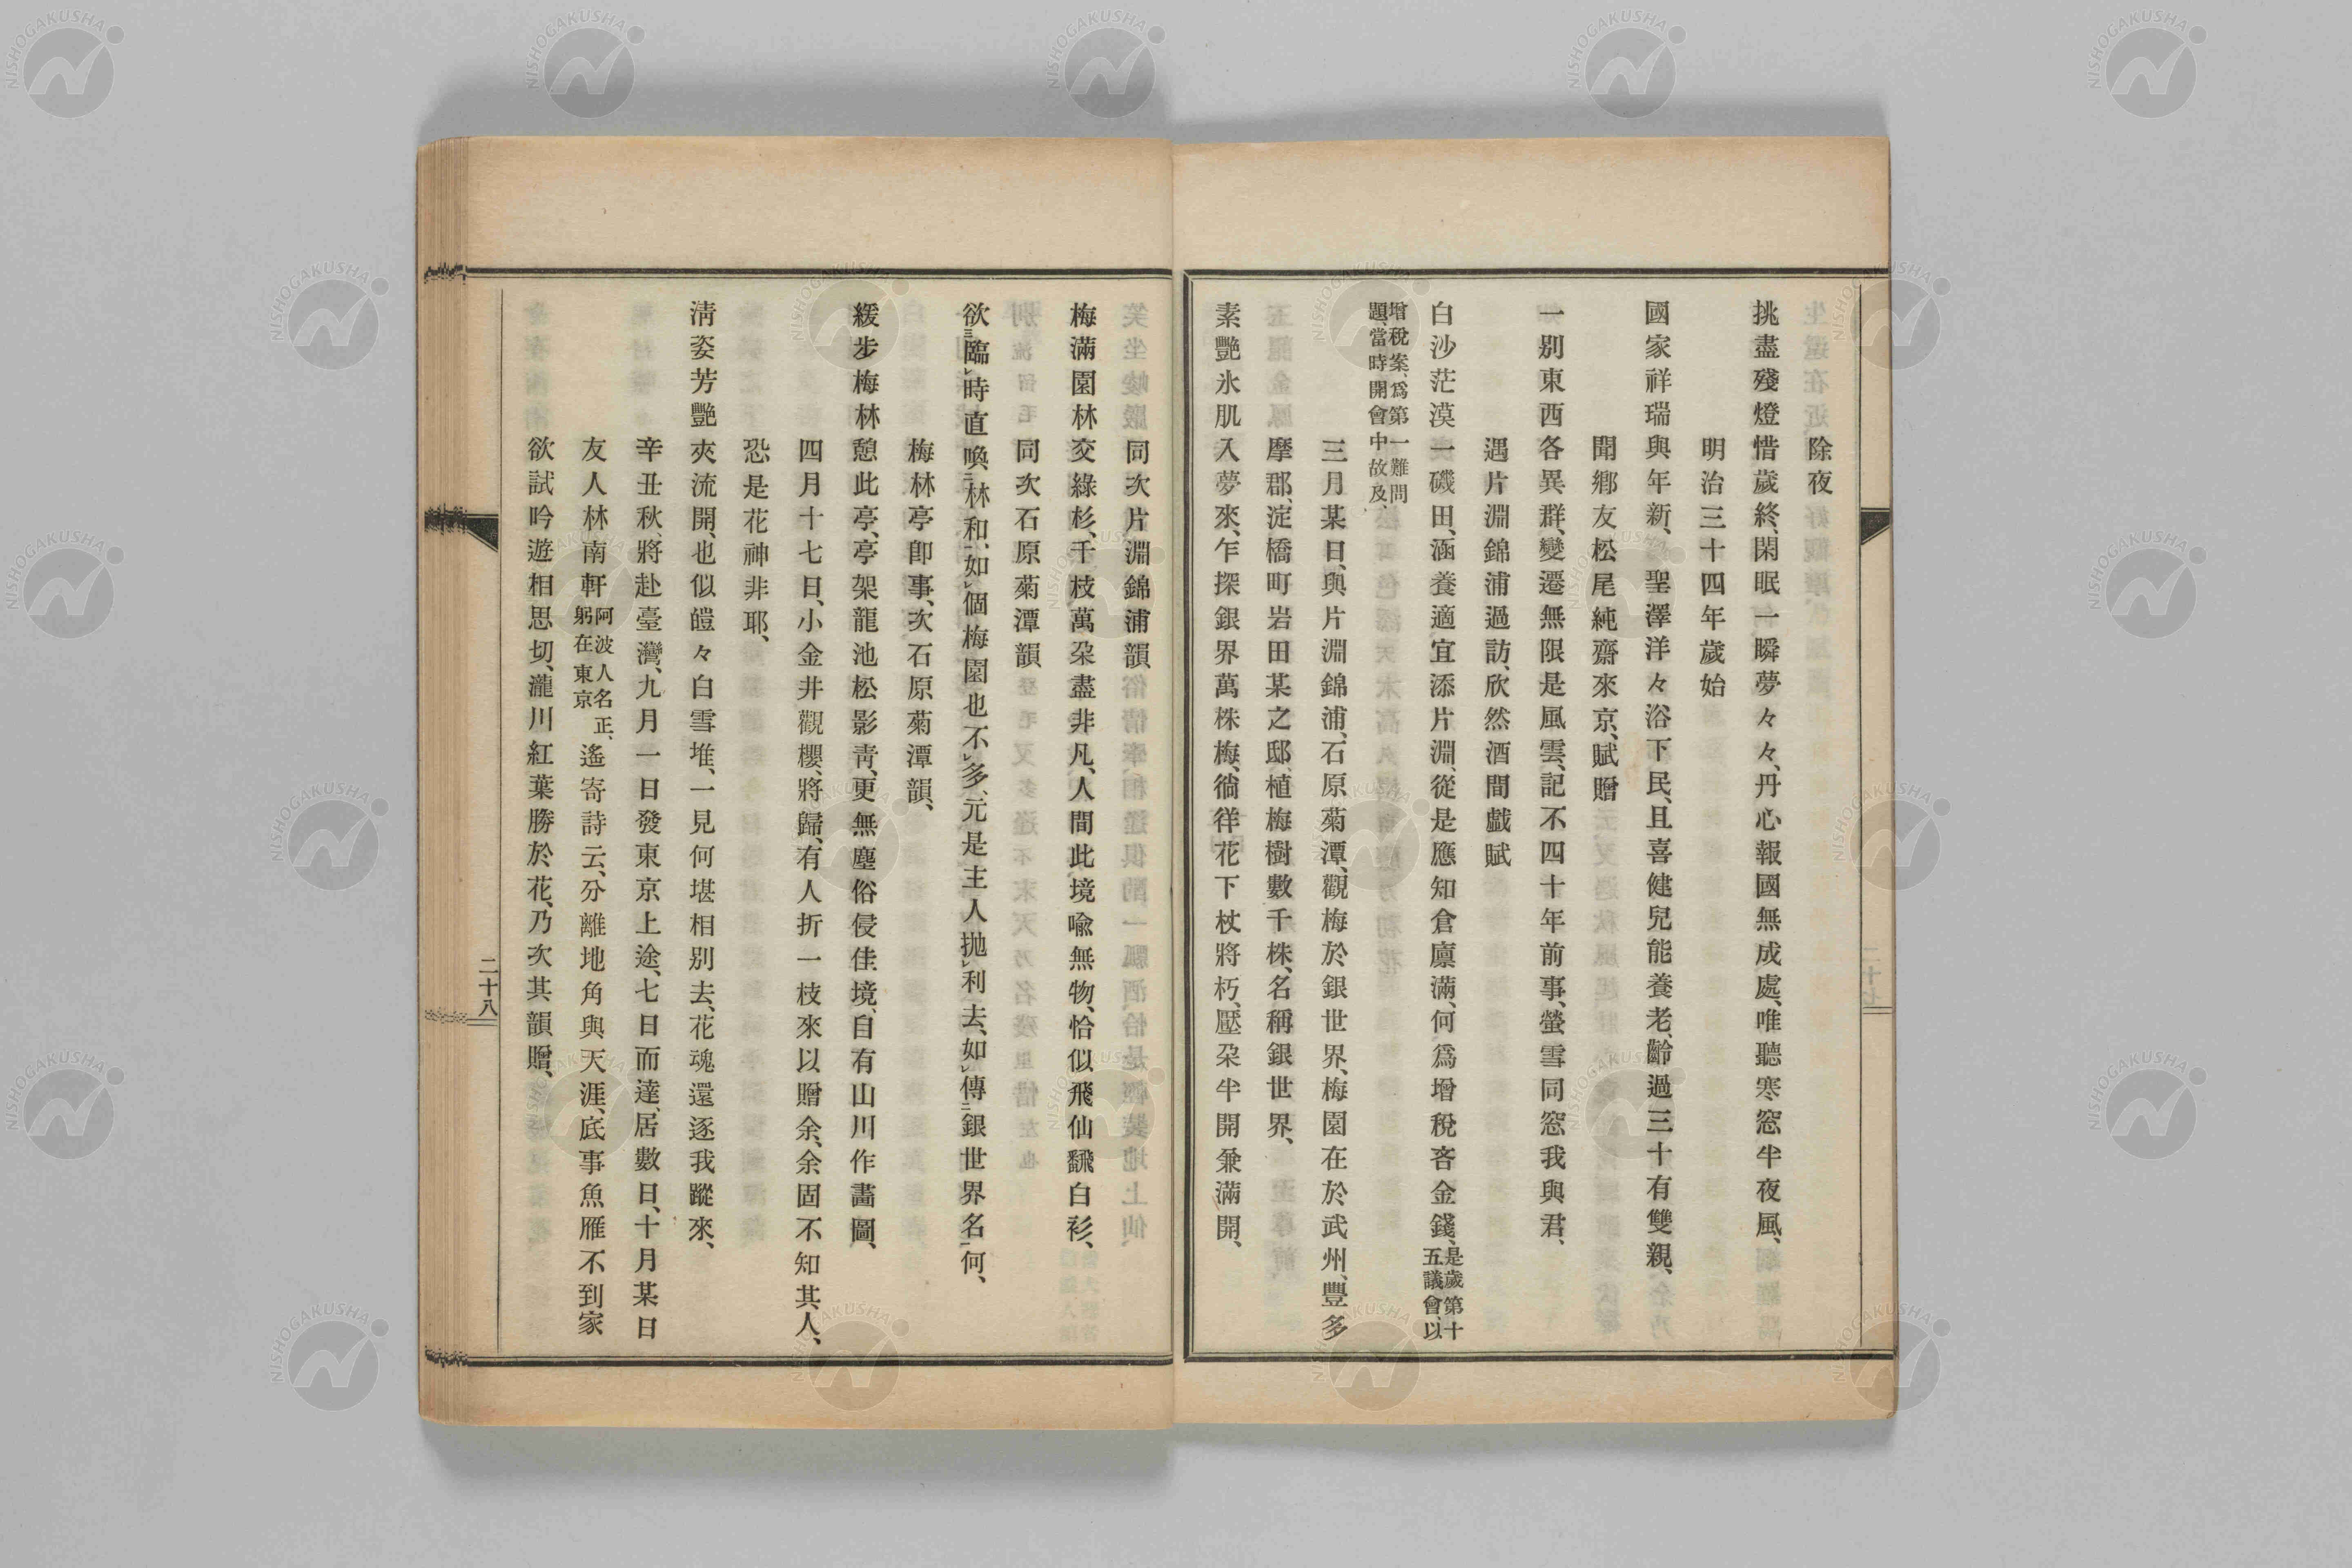 除夜
挑盡殘燈惜歲終、閑眠一瞬夢々々、丹心報國無成處、唯聽寒窓半夜風、
明治三十四年歲始
國家祥瑞與年新、聖澤洋々浴下民、且喜健兒能養老、齡過三十有雙親、
聞鄉友松尾純齋來京、賦贈
一別東西各異群、變遷無限是風雲、記不四十年前事、螢雪同窓我與君、
遇片淵錦浦過訪、欣然酒間戲賦
白沙茫漠一磯田、涵養適宜添片淵、從是應知倉廩滿、何爲增稅吝金錢、是歲第十五議會、以
增稅案、爲第一難問題、當時開會中故及、
三月某日、與片淵錦浦、石原菊潭、觀梅於銀世界、梅園在於武州、豐多
摩郡、淀橋町岩田某之邸、植梅樹數千株、名稱銀世界、
素艷氷肌入夢來、乍探銀界萬株梅、徜徉花下杖將朽、壓朶半開兼滿開、
同次片淵錦浦韻
梅滿園林交綠杉、千枝萬朶盡非凡、人間此境喩無物、恰似飛仙飜白衫、
同次石原菊潭韻
欲㆑臨時直喚㆓林和、如㆑個梅園也不㆑多、元是主人抛㆑利去、如㆑傳㆓銀世界名㆒何、
梅林亭卽事、次石原菊潭韻、
緩步梅林憩此亭、亭架龍池松影靑、更無塵俗侵佳境、自有山川作畵圖、
四月十七日、小金井觀櫻、將歸、有人折一枝來以贈余、余固不知其人、
恐是花神非耶、
淸姿芳艷夾流開、也似皚々白雪堆、一見何堪相別去、花魂還逐我蹤來、
辛丑秋、將赴臺灣、九月一日發東京上途、七日而達、居數日、十月某日
友人林南軒阿波人名正、躬在東京遙寄詩云、分離地角與天涯、底事魚雁不到家
欲試吟遊相思切、瀧川紅葉勝於花、乃次其韻贈、
二十八
NISHOGAKUSHA